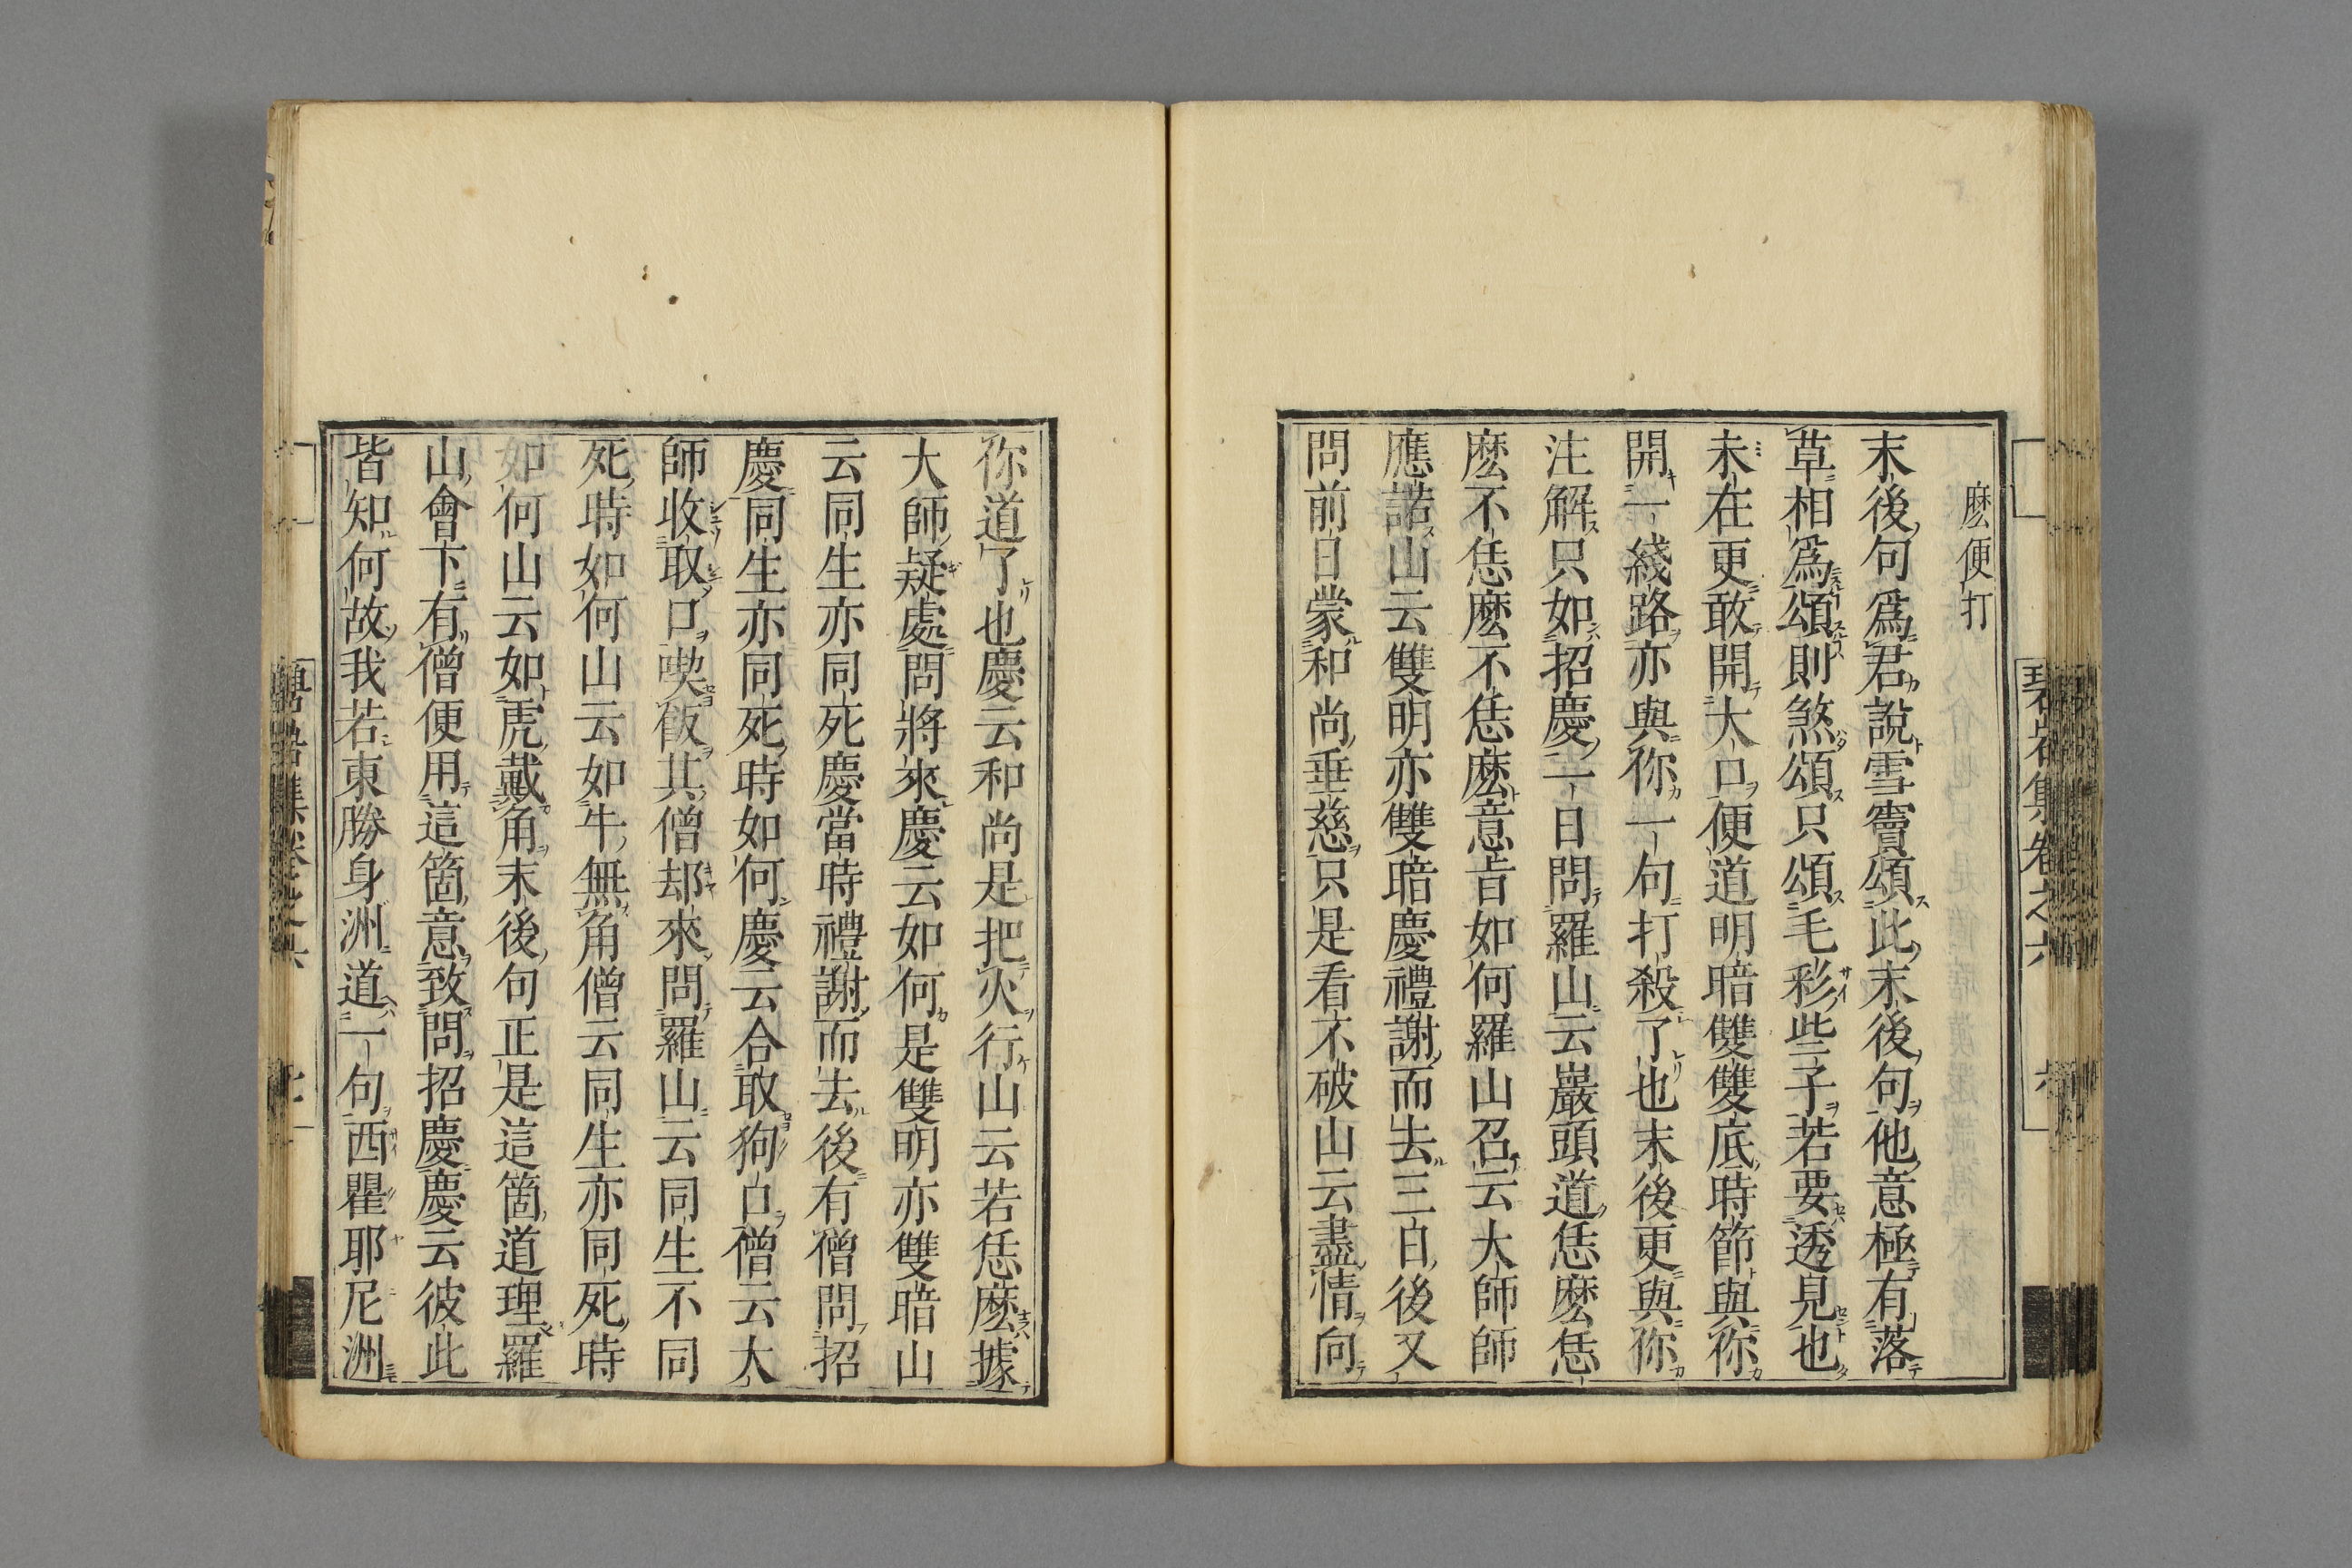 麽便打
末後句爲君說雪竇頌此末後句他意極有落
草相爲頌則煞頌只頌毛彩些子若要透見也
未在更敢開大口便道明暗雙雙底時節與你
開一線路亦與你一句打殺了也末後更與你
注解只如招慶一日問羅山云巖頭道恁麽恁
麽不恁麽不恁麽意旨如何羅山召云大師師
應諾山云雙明亦雙暗慶禮謝而去三日後又
問前日蒙和尚垂慈只是看不破山云盡情向
你道了也慶云和尚是把火行山云若恁麽據
大師疑處問將來慶云如何是雙明亦雙暗山
云同生亦同死慶當時禮謝而去後有僧問招
慶同生亦同死時如何慶云合取狗口僧云大
師收取口喫飯其僧却來問羅山云同生不同
死時如何山云如牛無角僧云同生亦同死時
如何山云如虎戴角末後句正是這箇道理羅
山會下有僧便用這箇意致問招慶慶云彼此
皆知何故我若東勝身洲道一句西瞿耶尼洲
碧岩集卷之六